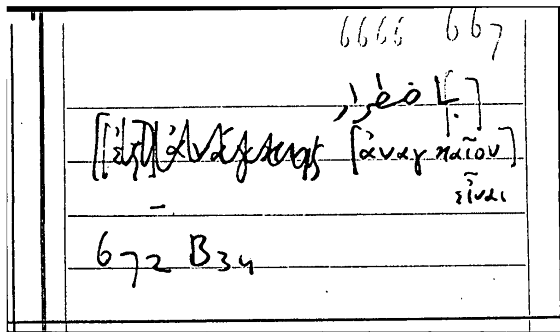 6666 667
[ب]اضطرار
[[ἐξ] ἀνάγκης [ἀναγκαῖον]
εἶναι
672 B34